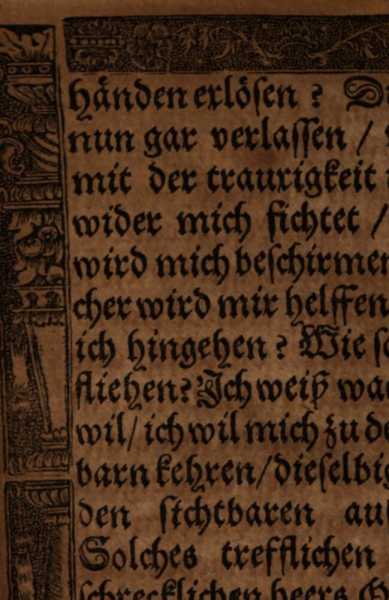 händen erlösen ?
nun gar verlassen /
mit der traurigkeit
wider mich fichtet /
wird mich beschirmen
cher wird mir helffen
ich hingehen? Wie
fliehen? Ich weiß
wil/ ich wil mich zu
barn kehren/
den sichtbaren
Solches trefflichen
schrecklichen heers